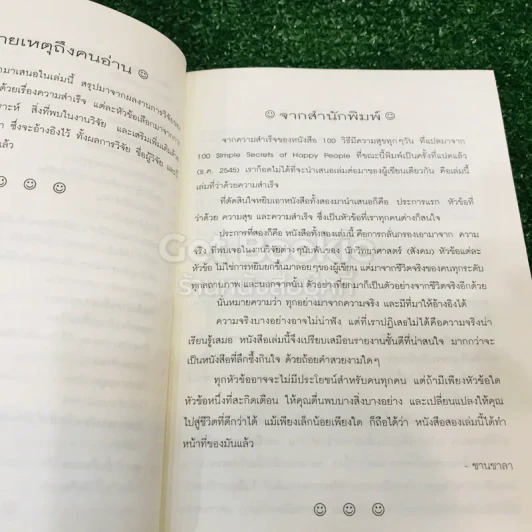 ายเหตุถึงคนอ่าน ☺
กมาเสนอในเล่มนี้ สรุปมาจากผลงานการวิจัย
ด้วยเรื่องความสำเร็จ แต่ละหัวข้อเลือกมาจาก
าะห์ สิ่งที่พบในงานวิจัย และเสริมเพิ่มเติมด้วย
า ซึ่งจะอ้างอิงไว้ ทั้งผลการวิจัย ชื่อผู้วิจัย และปี
แล้ว
☺ ☺ ☺
☺ จากสำนักพิมพ์ ☺
จากความสำเร็จของหนังสือ 100 วิธีมีความสุขทุกๆวัน ที่แปลมาจาก
100 Simple Secrets of Happy People ที่ขณะนี้พิมพ์เป็นครั้งที่แปดแล้ว
(ธ.ค. 2545) เราก็อดไม่ได้ที่จะนำเสนอเล่มต่อมาของผู้เขียนเดียวกัน คือเล่มนี้
เล่มที่ว่าด้วยความสำเร็จ
ที่ตัดสินใจหยิบเอาหนังสือทั้งสองมานำเสนอก็คือ ประการแรก หัวข้อที่
ว่าด้วย ความสุข และความสำเร็จ ซึ่งเป็นหัวข้อที่เราทุกคนต่างก็สนใจ
ประการที่สองก็คือ หนังสือทั้งสองเล่มนี้ คือการกลั่นกรองเอามาจาก ความ
จริง ที่พบเจอในงานวิจัยต่างๆนับพันของ นักวิทยาศาสตร์ (สังคม) หัวข้อแต่ละ
หัวข้อ ไม่ใช่การหยิบยกขึ้นมาลอยๆของผู้เขียน แต่มาจากชีวิตจริงของคนทุกระดับ
ทุกสถานภาพ และนอกจากนั้น ตัวอย่างที่ยกมาก็เป็นตัวอย่างจากชีวิตจริงอีกด้วย
นั่นหมายความว่า ทุกอย่างมาจากความจริง และมีที่มาให้อ้างอิงได้
ความจริงบางอย่างอาจไม่น่าฟัง แต่ที่เราปฏิเสธไม่ได้คือความจริงน่า
เรียนรู้เสมอ หนังสือเล่มนี้จึงเปรียบเสมือนรายงานชั้นดีที่น่าสนใจ มากกว่าจะ
เป็นหนังสือที่ลึกซึ้งกินใจ ด้วยถ้อยคำสวยงามใดๆ
ทุกหัวข้ออาจจะไม่มีประโยชน์สำหรับคนทุกคน แต่ถ้ามีเพียงหัวข้อใด
หัวข้อหนึ่งที่สะกิดเตือน ให้คุณตื่นพบบางสิ่งบางอย่าง และเปลี่ยนแปลงให้คุณ
ไปสู่ชีวิตที่ดีกว่าได้ แม้เพียงเล็กน้อยเพียงใด ก็ถือได้ว่า หนังสือสองเล่มนี้ได้ทำ
หน้าที่ของมันแล้ว
- ชานชาลา
☺ ☺ ☺